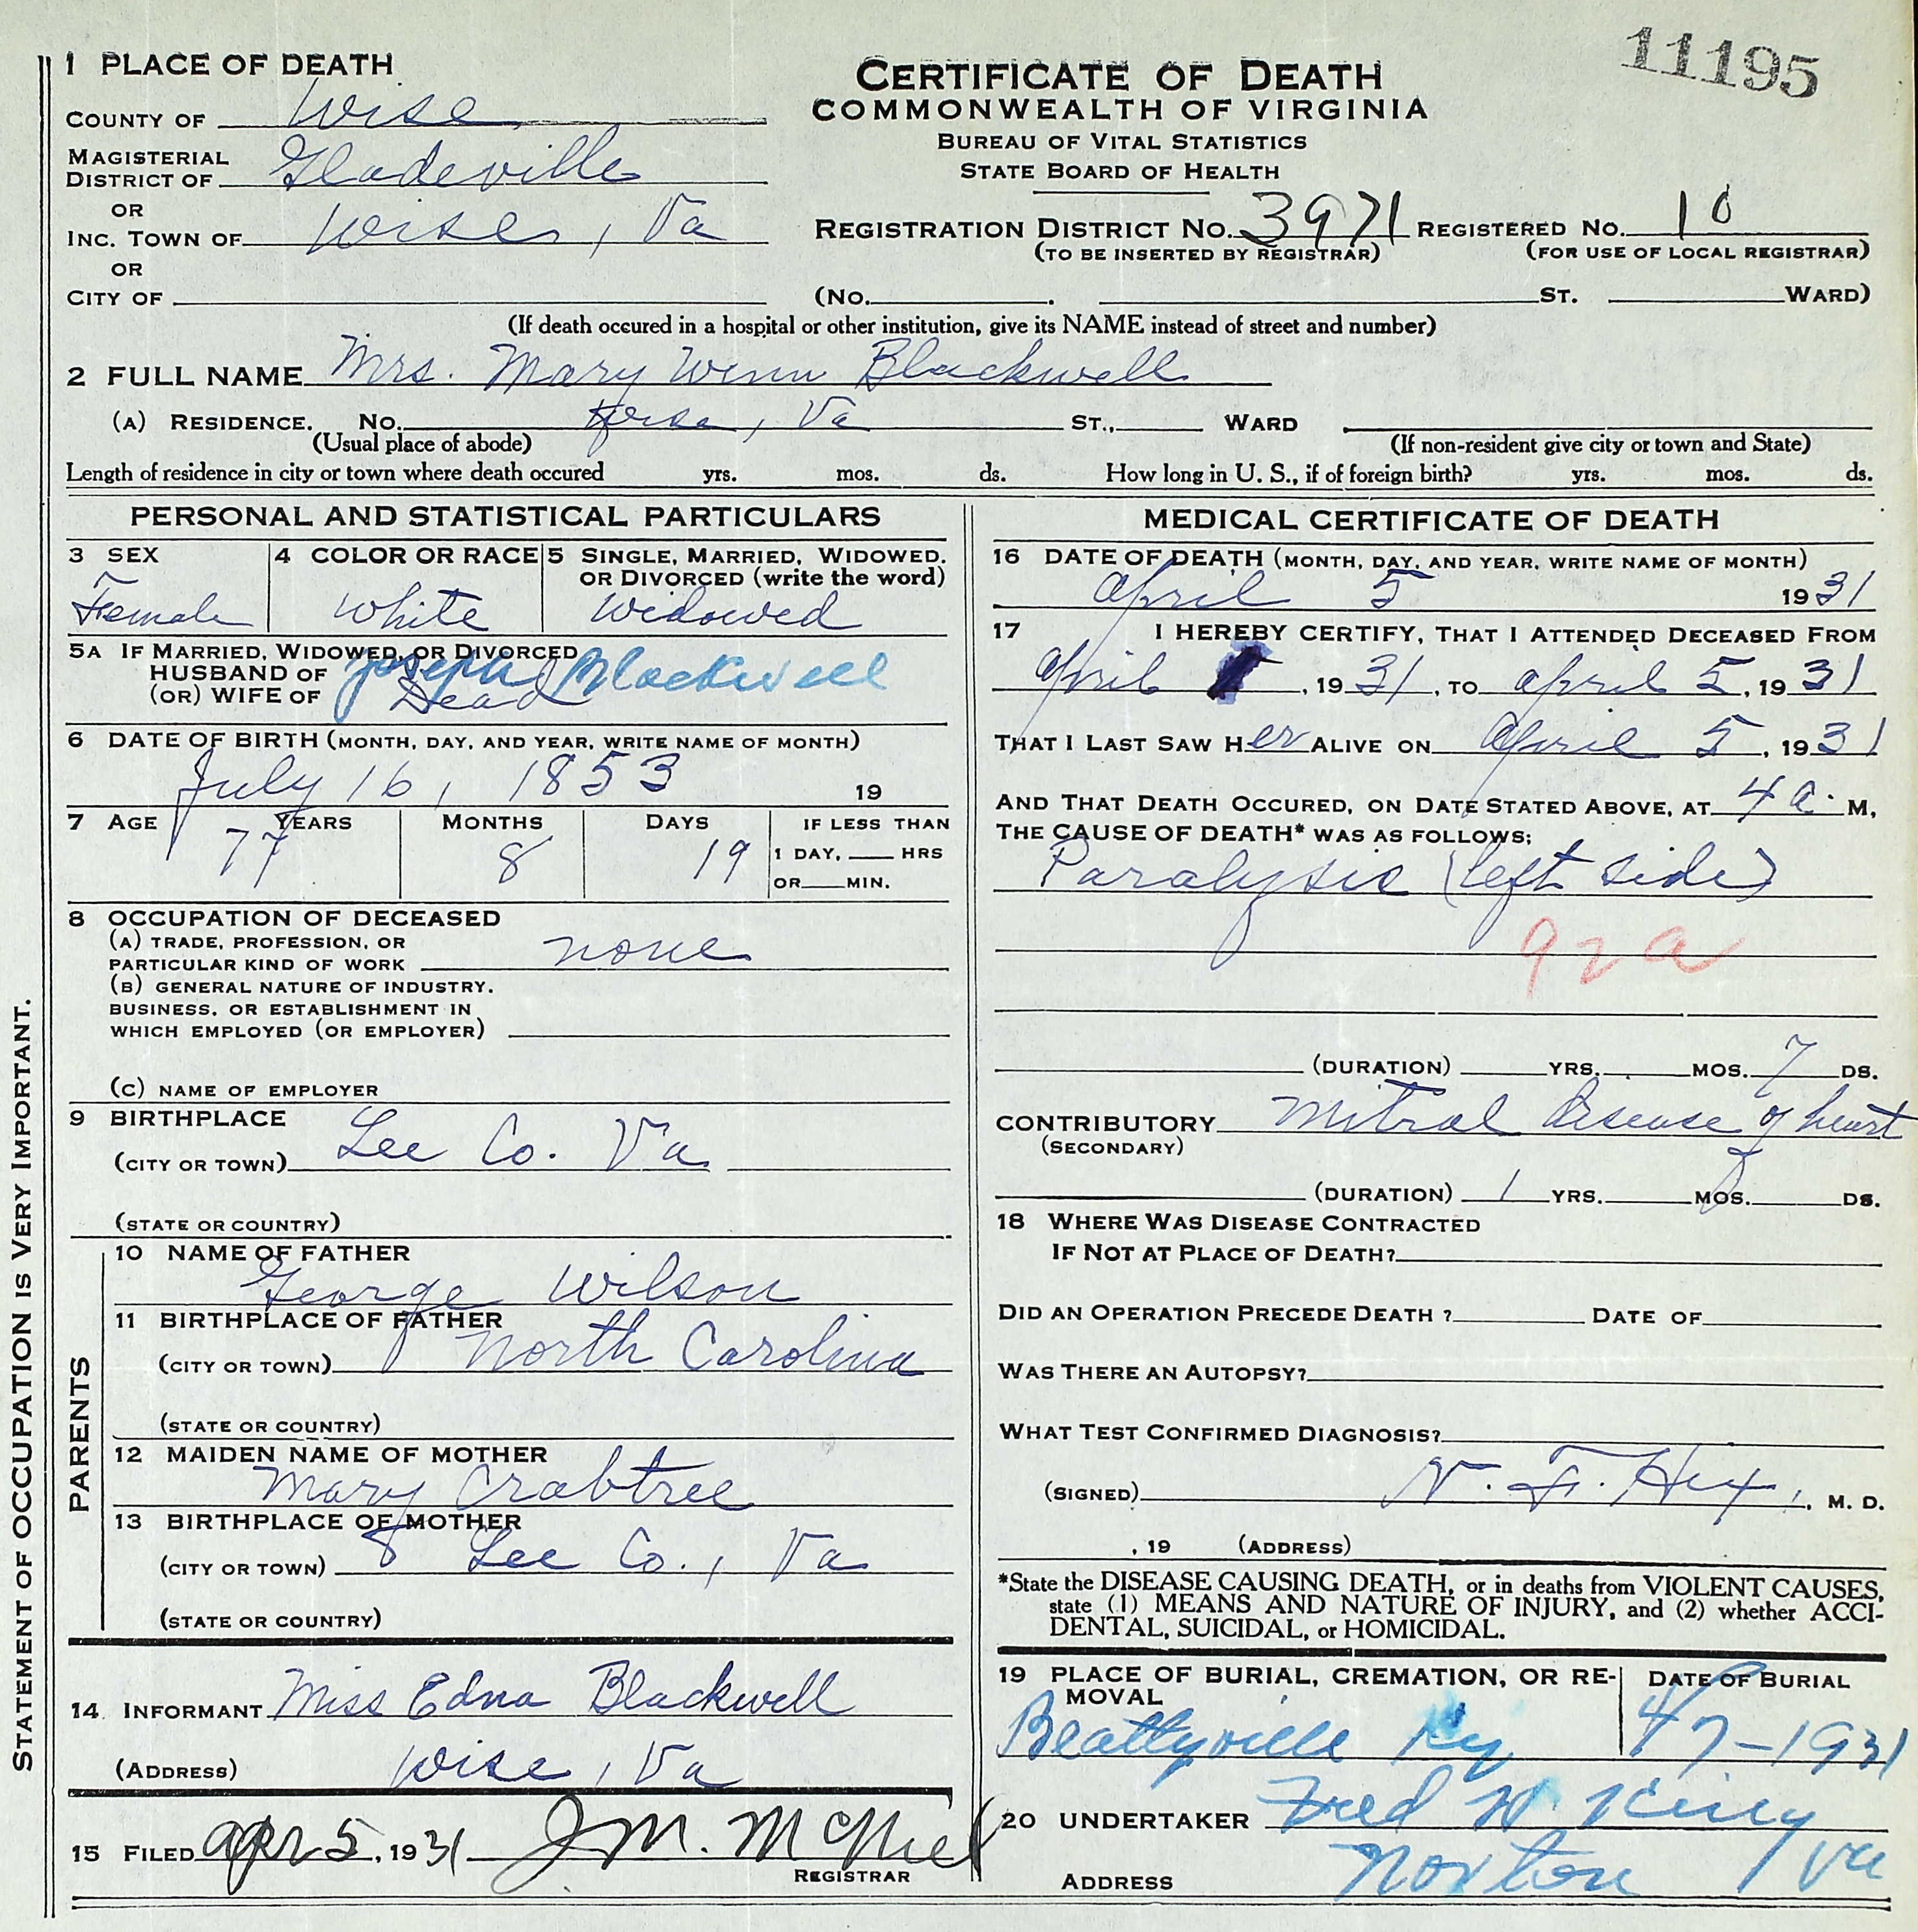 11195
1 PLACE OF DEATH
COUNTY OF Wise
MAGISTERIAL DISTRICT OF Gladeville
OR
INC. TOWN OF Wise, Va
OR
CITY OF
CERTIFICATE OF DEATH
COMMONWEALTH OF VIRGINIA
BUREAU OF VITAL STATISTICS
STATE BOARD OF HEALTH
REGISTRATION DISTRICT NO. 3971 REGISTERED NO. 10
(TO BE INSERTED BY REGISTRAR) (FOR USE OF LOCAL REGISTRAR)
(No. ST. WARD)
(If death occured in a hospital or other institution, give its NAME instead of street and number)
2 FULL NAME Mrs. Mary Winn Blackwell
(A) RESIDENCE. No. Wise, Va ST., WARD
(Usual place of abode) (If non-resident give city or town and State)
Length of residence in city or town where death occured yrs. mos. ds. How long in U. S., if of foreign birth? yrs. mos. ds.
PERSONAL AND STATISTICAL PARTICULARS
3 SEX
Female
4 COLOR OR RACE
White
5 SINGLE, MARRIED, WIDOWED. OR DIVORCED (write the word)
Widowed
5A IF MARRIED, WIDOWED, OR DIVORCED
HUSBAND OF Joseph Blackwell
(OR) WIFE OF Dead
6 DATE OF BIRTH (MONTH, DAY, AND YEAR, WRITE NAME OF MONTH)
July 16, 1853 19
7 AGE YEARS MONTHS DAYS IF LESS THAN
77 8 19 1 DAY, HRS
OR MIN.
8 OCCUPATION OF DECEASED
(A) TRADE, PROFESSION, OR
PARTICULAR KIND OF WORK none
(B) GENERAL NATURE OF INDUSTRY.
BUSINESS. OR ESTABLISHMENT IN
WHICH EMPLOYED (OR EMPLOYER)
(C) NAME OF EMPLOYER
9 BIRTHPLACE
(CITY OR TOWN) Lee Co. Va
(STATE OR COUNTRY)
PARENTS
10 NAME OF FATHER
George Wilson
11 BIRTHPLACE OF FATHER
(CITY OR TOWN) North Carolina
(STATE OR COUNTRY)
12 MAIDEN NAME OF MOTHER
Mary Crabtree
13 BIRTHPLACE OF MOTHER
(CITY OR TOWN) Lee Co., Va
(STATE OR COUNTRY)
14 INFORMANT Miss Edna Blackwell
(ADDRESS) Wise, Va
15 FILED Apr 5, 1931 J M. McNiel
REGISTRAR
STATEMENT OF OCCUPATION IS VERY IMPORTANT.
MEDICAL CERTIFICATE OF DEATH
16 DATE OF DEATH (MONTH, DAY, AND YEAR, WRITE NAME OF MONTH)
April 5 1931
17 I HEREBY CERTIFY, THAT I ATTENDED DECEASED FROM
April , 1931, TO April 5, 1931
THAT I LAST SAW Her ALIVE ON April 5, 1931
AND THAT DEATH OCCURED, ON DATE STATED ABOVE, AT 4 a. M,
THE CAUSE OF DEATH* WAS AS FOLLOWS;
Paralysis (left side)
92a
(DURATION) YRS. MOS. 7 DS.
CONTRIBUTORY Mitral disease of heart
(SECONDARY)
(DURATION) 1 YRS. MOS. DS.
18 WHERE WAS DISEASE CONTRACTED
IF NOT AT PLACE OF DEATH?
DID AN OPERATION PRECEDE DEATH ? DATE OF
WAS THERE AN AUTOPSY?
WHAT TEST CONFIRMED DIAGNOSIS?
(SIGNED) N. F. Hix, M. D.
, 19 (ADDRESS)
*State the DISEASE CAUSING DEATH, or in deaths from VIOLENT CAUSES,
state (1) MEANS AND NATURE OF INJURY, and (2) whether ACCI-
DENTAL, SUICIDAL, or HOMICIDAL.
19 PLACE OF BURIAL, CREMATION, OR RE-
MOVAL
Beattyville Ky
DATE OF BURIAL
4/7-1931
20 UNDERTAKER Fred W.
ADDRESS Norton Va